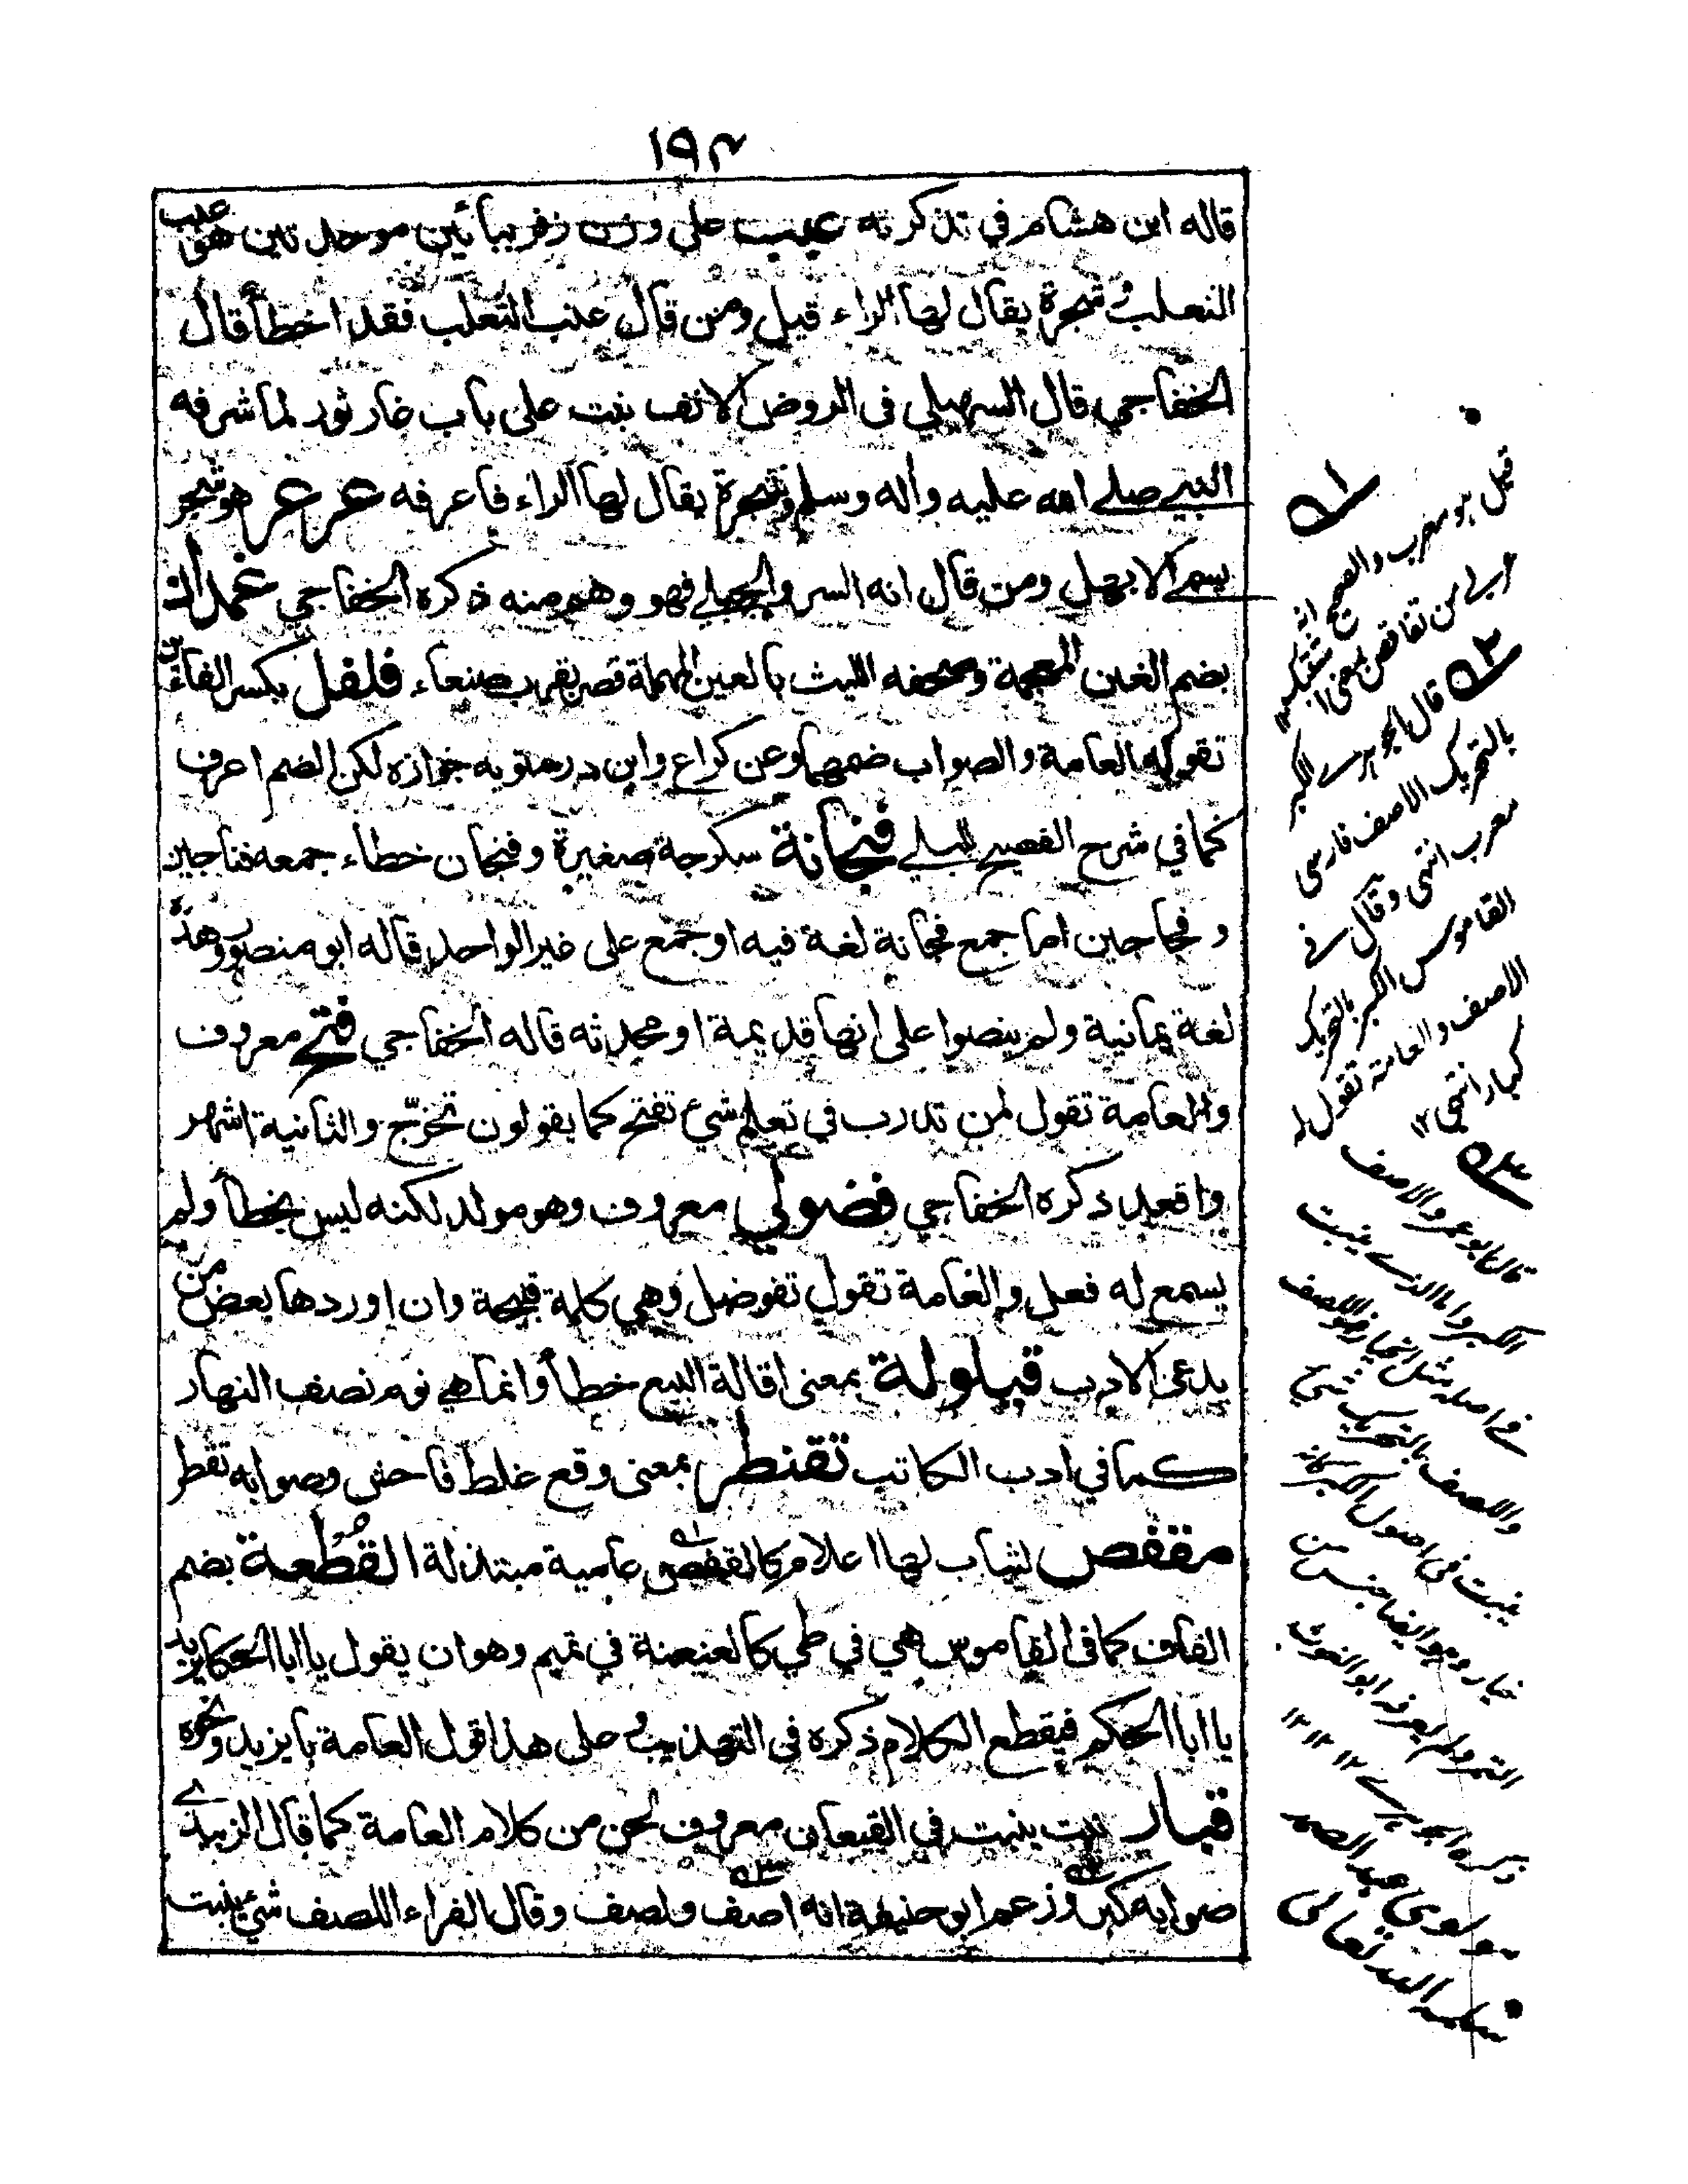 ١٩٢
قاله ابن هشام في تذكرته عبب على وزن زفر ببائين موحدتين هو عنب
الثعلب وشجرة يقال لها الراء قيل ومن قال عنب الثعلب فقد اخطأ قال
الخفاجي قال السهيلي في الروض الانف نبت على باب غار ثور لما شرفه
النبي صلى الله عليه وآله وسلم وشجرة يقال لها الراء فاعرفه عرعر هو شجر
يسمى الابهل ومن قال انه السرو الجبلي فهو وهم منه ذكره الخفاجي غمدان
بضم الغين المعجمة وصحفه الليث بالعين المهملة قصر بقرب صنعاء فلفل بكسر الفائين
تقوله العامة والصواب ضمهما وعن كراع وابن درستويه جوازه لكن الضم اعرف
كما في شرح الفصيح للبلي فنجانة سكرجة صغيرة وفنجان خطاء جمعه فناجين
وفجاجين اما جمع فجانة لغة فيه او جمع على غير الواحد قاله ابو منصور وهذه
لغة يمانية ولم ينصوا على انها قديمة او محدثه قاله الخفاجي فتح معروف
والعامة تقول لمن تدرب في تعلم شيء تفتح كما يقولون تخرّج والثانية اشهر
واقعد ذكره الخفاجي فضولي معروف وهو مولد لكنه ليس بخطأ ولم
يسمع له فعل والعامة تقول تفوضل وهي كلمة قبيحة وان اوردها بعض من
يدعى الادب قيلولة بمعنى اقالة البيع خطأ وانما هي نوم نصف النهار
كما في ادب الكاتب تقنطر بمعنى وقع غلط فاحش وصوابه تقطر
مقفص لثياب لها اعلام كالقفص عامية مبتذلة القُطْعة بضم
القاف كما في القاموس هي في طي كالعنعنة في تميم وهو ان يقول يا ابا الحكا يريد
يا ابا الحكم فيقطع الكلام ذكره في التهذيب وعلى هذا قول العامة بايزيد ونحوه
قبار نبت ينبت في القيعان معروف لحن من كلام العامة كما قال الزبيدي
صوابه كبر وزعم ابو حنيفة انه اصف ولصف وقال الفراء اللصف شيء ينبت
قيل هو معرب والصحيح انه
عربي من تقافص بمعنى اشتبك
قال الجوهري الكبر
بالتحريك الاصف فارسي
معرب انتهى وقال في
القاموس الكبر بالتحريك
الاصف والعامة تقول
كبار انتهى ١٢
قال ابو عمرو الاصف
الكبر واما الذي ينبت
في اصله مثل الخيار فهو اللصف
واللصف بالتحريك شيء
ينبت في اصول الكبر كانه
خيار وهو ايضا جنس من
التمر ولم يعرفه ابو الغوث
ذكره الجوهري ١٢ ١٢ ١٢
مولوي عبد الصمد
سلمه الله تعالى